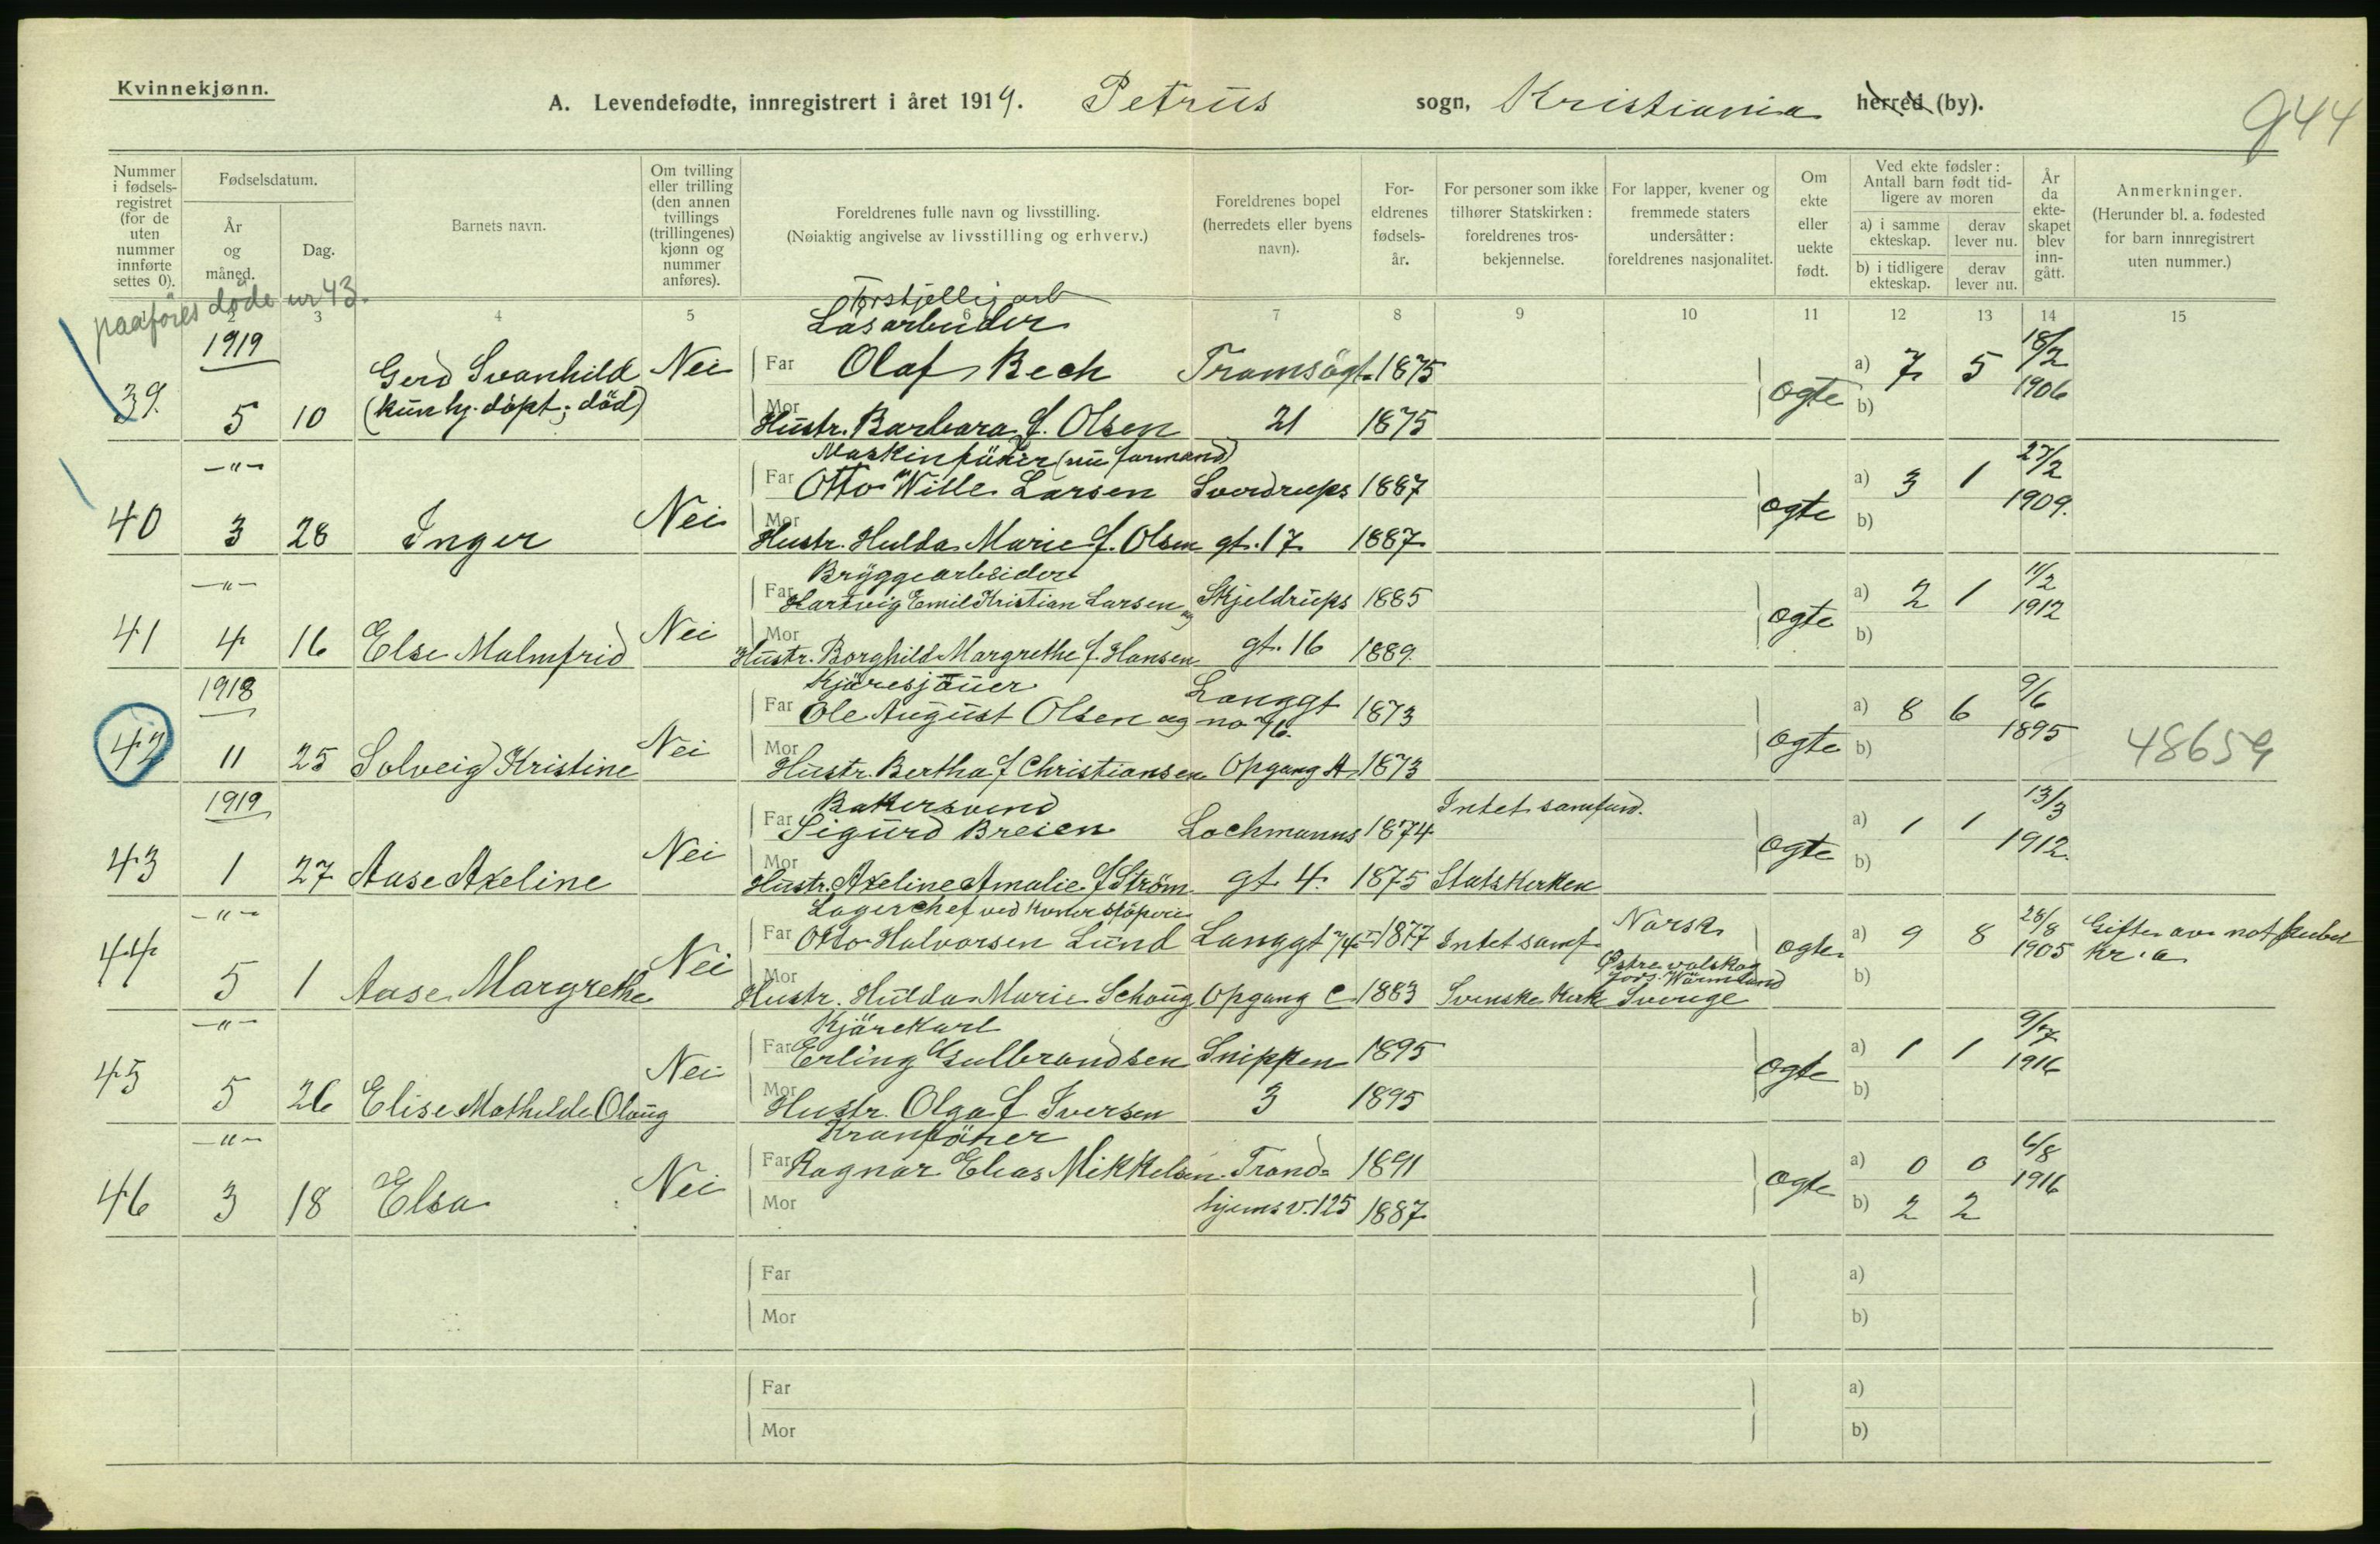 Kvinnekjønn.
A. Levendefødte, innregistrert i året 1919. Petrus sogn, Kristiania herred (by).
944
Nummer i fødselsregistret (for de uten nummer innførte settes 0).
Fødselsdatum.
År og måned.
Dag.
Barnets navn.
Om tvilling eller trilling (den annen tvillings (trillingenes) kjønn og nummer anføres).
Foreldrenes fulle navn og livsstilling.
(Nøiaktig angivelse av livsstilling og erhverv.)
Foreldrenes bopel (herredets eller byens navn).
Foreldrenes fødselsår.
For personer som ikke tilhører Statskirken: foreldrenes trosbekjennelse.
For lapper, kvener og fremmede staters undersåtter: foreldrenes nasjonalitet.
Om ekte eller uekte født.
Ved ekte fødsler: Antall barn født tidligere av moren
a) i samme ekteskap. derav lever nu.
b) i tidligere ekteskap. derav lever nu.
År da ekteskapet blev inngått.
Anmerkninger.
(Herunder bl. a. fødested for barn innregistrert uten nummer.)
paaføres døde nr 43.
2 3 4 5 6 7 8 9 10 11 12 13 14 15
Forskjellig arb
Løsarbeider
1919
39. 5 10 Gerd Svanhild (kun hj. døpt; död) Nei
Far Olaf Bech Tromsögt. 1875
Mor Hustr. Barbara f. Olsen 21 1875
ogte a) 7 5 b) 18/2 1906
Maskinpüsser (nu formand)
40 -"- 3 28 Inger Nei
Far Otto Wille Larsen Sverdrups 1887
Mor Hustr. Hulda Marie f. Olsen gt. 17 1887
ogte a) 3 1 b) 27/2 1909.
Bryggearbeider
41 -"- 4 16 Else Malmfrid Nei
Far Hartvig Emil Kristian Larsen og Skjeldrups 1885
Mor Hustr. Borghild Margrethe f. Hansen gt. 16 1889.
ogte a) 2 1 b) 11/2 1912
Kjøresjauer
1918
42 11 25 Solveig Kristine Nei
Far Ole August Olsen og Langgt no 7/6. 1873
Mor Hustr. Bertha f Christiansen Opgang A 1873
ogte a) 8 6 b) 9/6 1895 48659
Bakersvend
1919
43 1 27 Aase Axeline Nei
Far Sigurd Breien Lochmanns 1874 Intet samfund.
Mor Hustr. Axeline Amalie f Ström gt 4. 1875 Statskirken
ogte a) 1 1 b) 13/3 1912.
Lagerchef ved
44 -"- 5 1 Aase Margrethe Nei
Far Otto Halvorsen Lund Langgt 1877 Intet samf. Norsk
Mor Hustr. Hulda Marie Schaug Opgang C 1883 Svenske Kirke Østre
Wärmland
Sverige
ogte a) 9 8 b) 28/8 1905 Gifte av not publ Kr.a
Kjörekarl
45 -"- 5 26 Elise Mathilde Olaug Nei
Far Erling Gulbrandsen Snippen 1895
Mor Hustr. Olga f Iversen 3 1895
ogte a) 1 1 b) 9/7 1916
Kranpasser
46 -"- 3 18 Elsa Nei
Far Ragnar Elias Mikkelsen Trond= 1891
Mor hjemsv. 125 1887
ogte a) 0 0 b) 2 2 6/8 1916
Far a)
Mor b)
Far a)
Mor b)